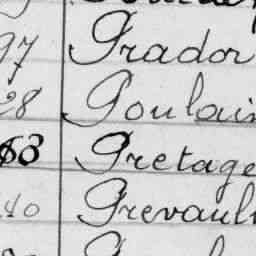 97 Prador
28 Poulain
63 Pretage
40 Prevault